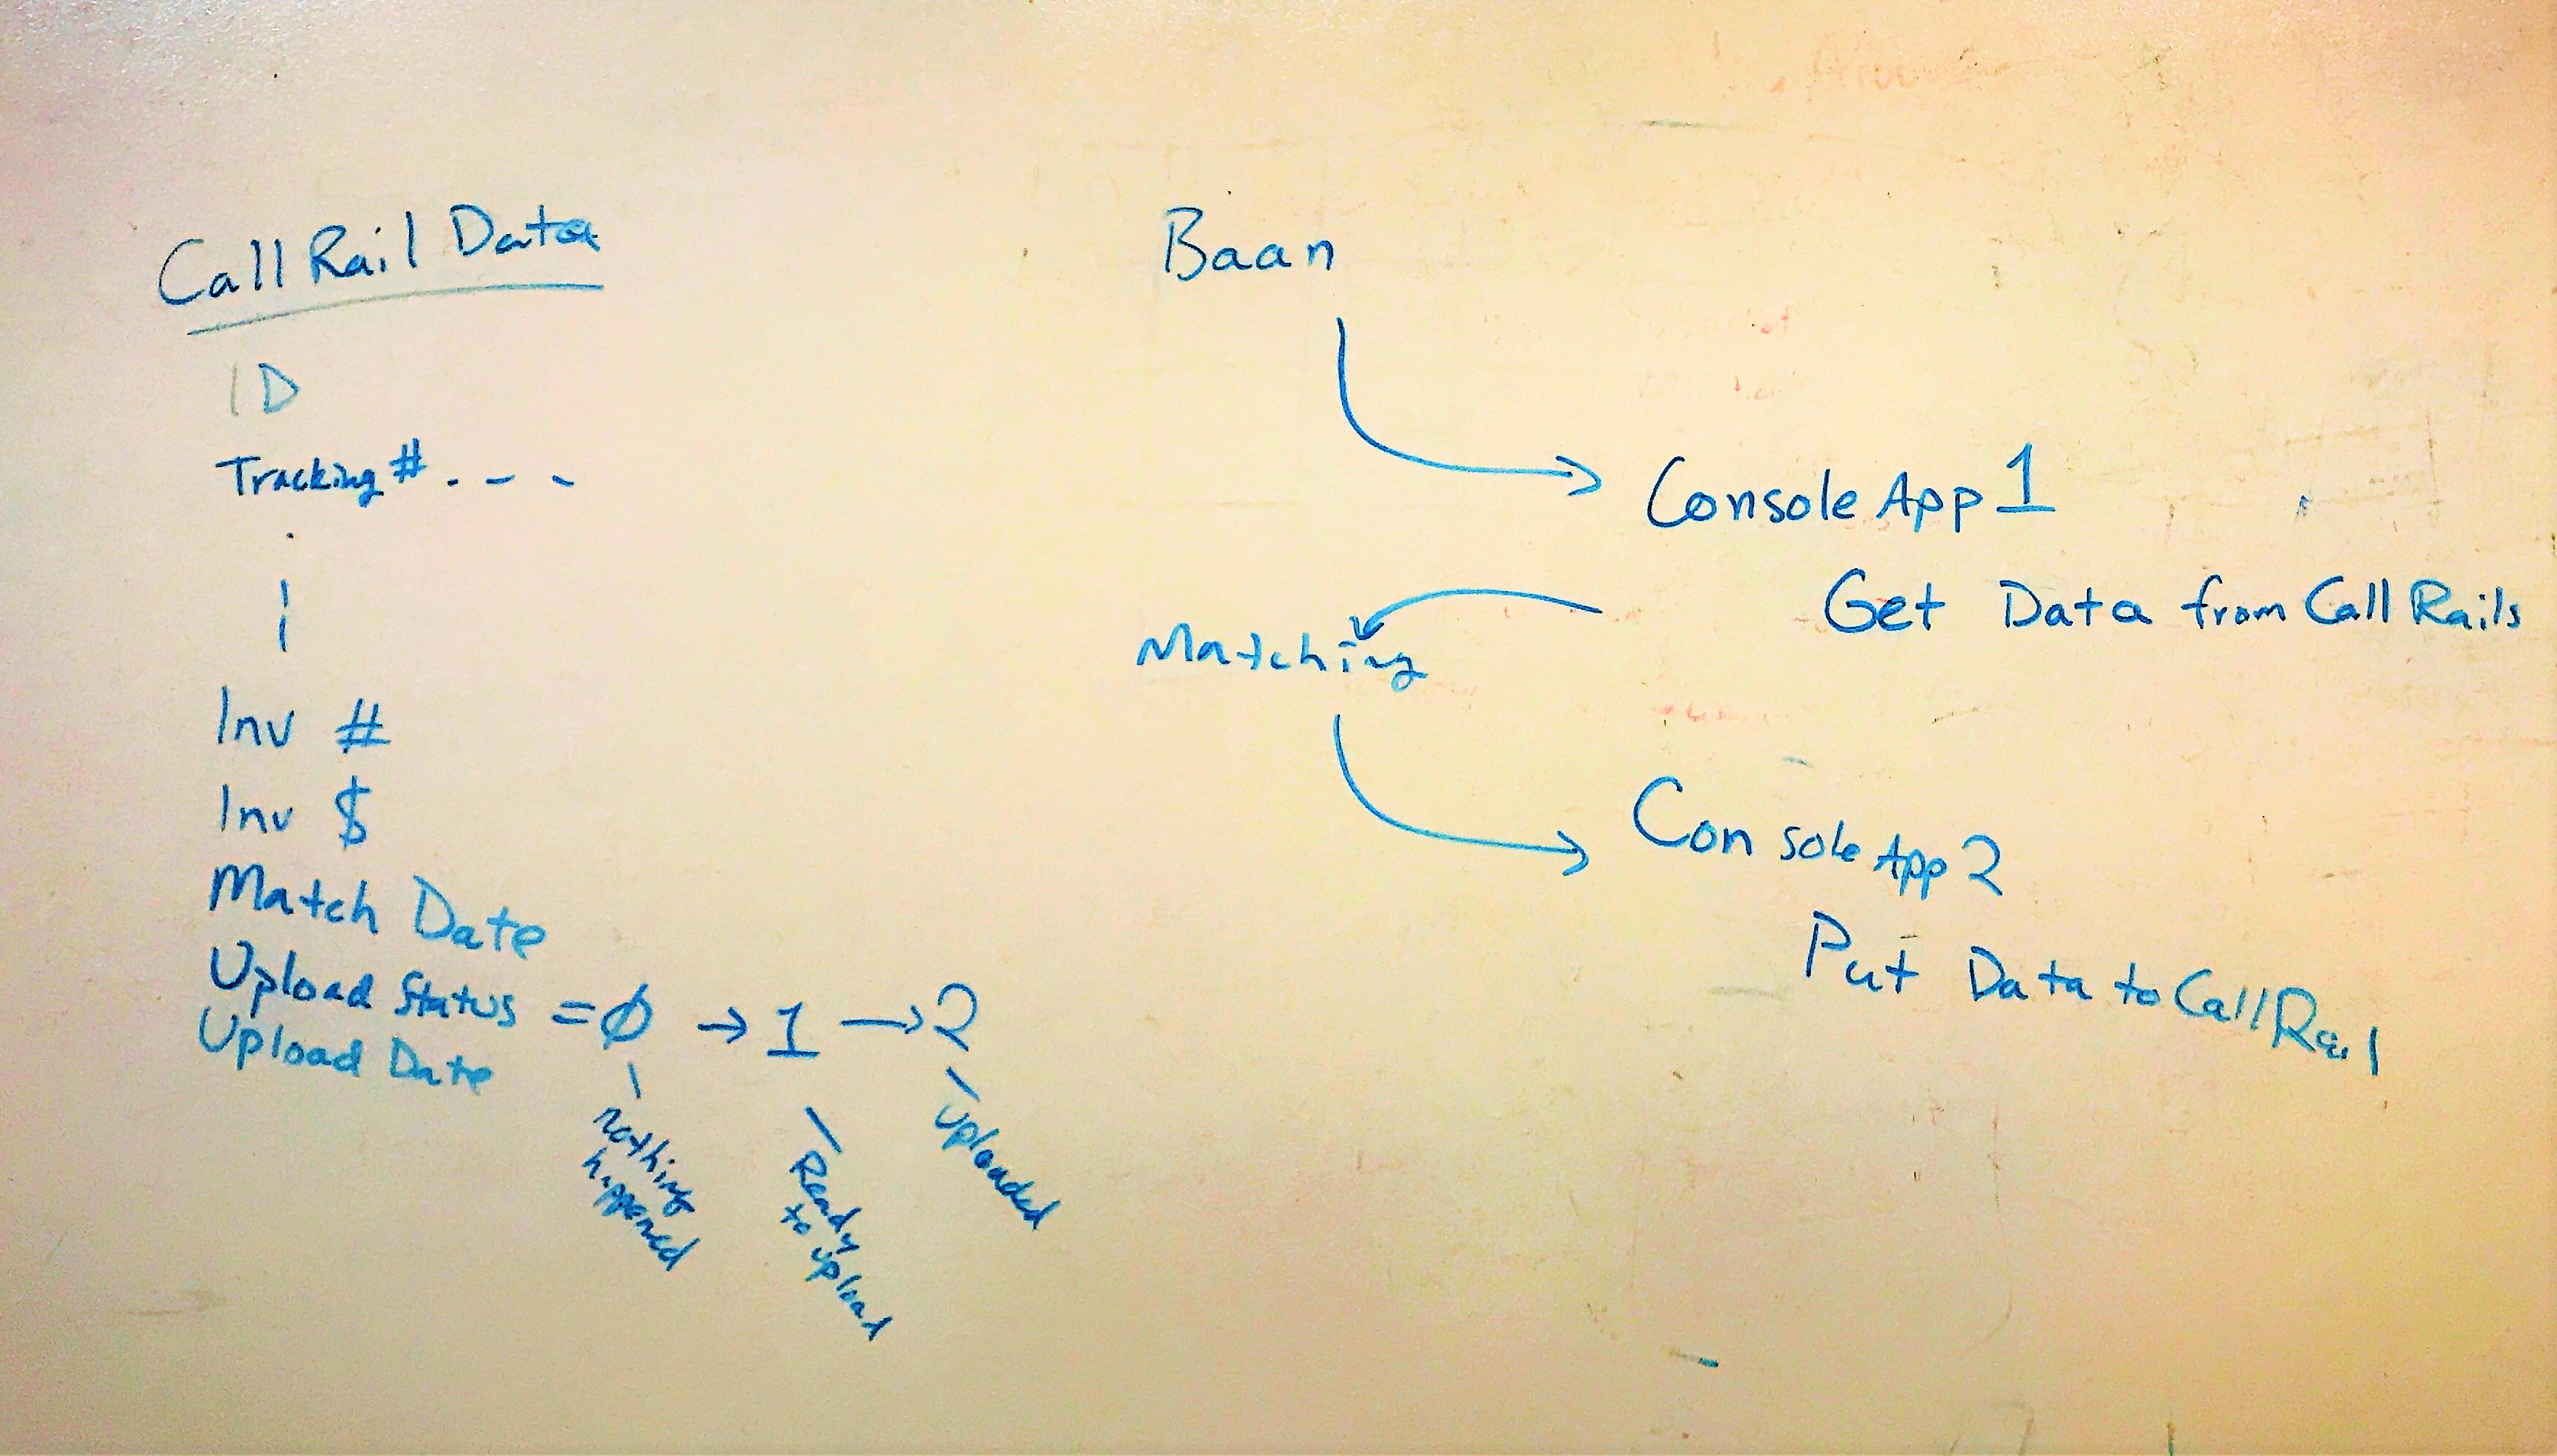 CallRail Data
ID
Tracking # . - -
Inv #
Inv $
Match Date
Upload Status = Ø → 1 → 2
Upload Date
nothing
happened
Ready
to upload
uploaded
Baan
Console App 1
Get Data from Call Rails
Matching
Console App 2
Put Data to CallRail